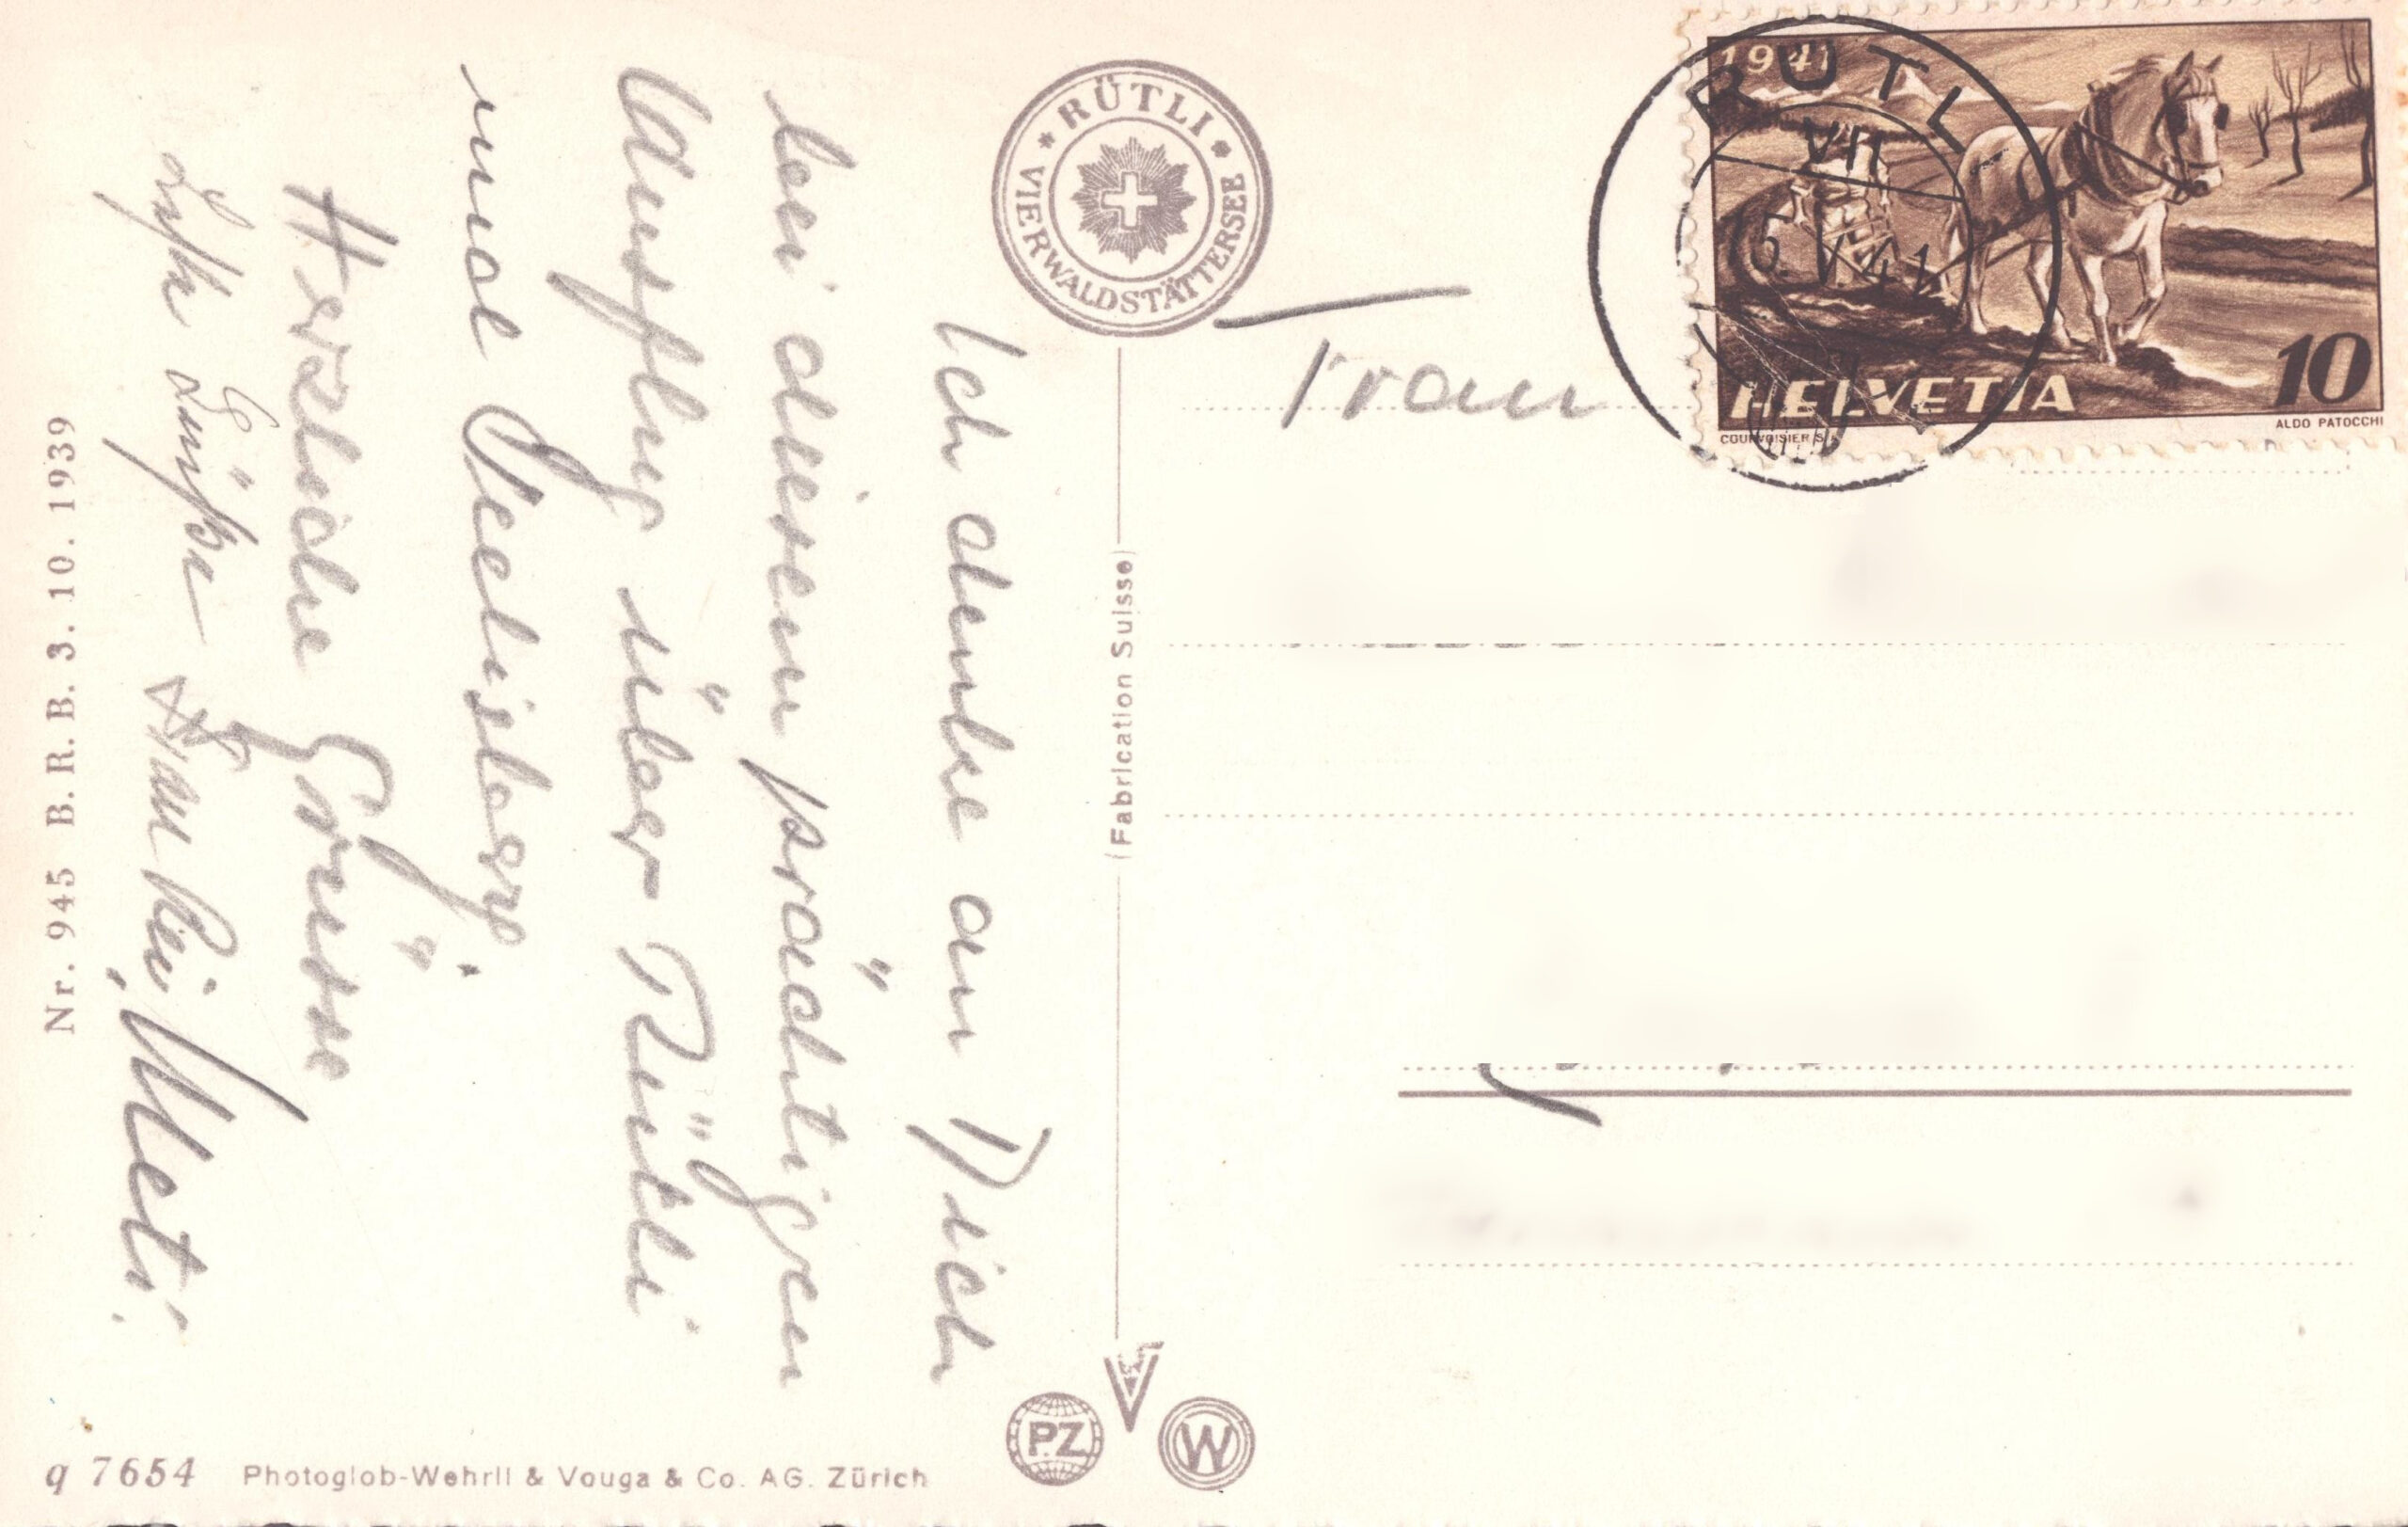 Ich denke an Dich
bei diesem prächtigen
Ausflug über Rütli
und Seelisberg.
Herzliche Grüsse
Meti.
RÜTLI
VIERWALDSTÄTTERSEE
Frau
1941
HELVETIA
10
COURVOISIER S.A.
ALDO PATOCCHI
RÜTLI
VII
(Fabrication Suisse)
Nr. 945 B. R. B. 3. 10. 1939
PZ
W
q 7654 Photoglob-Wehrli & Vouga & Co. AG. Zürich